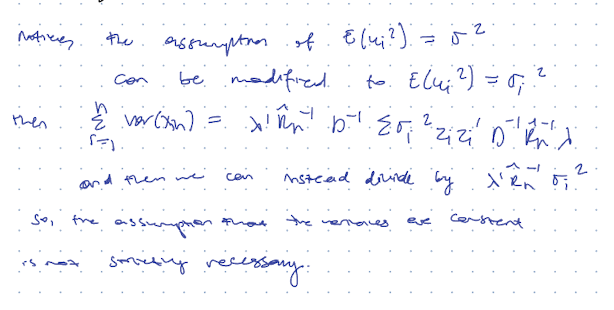 Notice, the assumption of E(uᵢ²) = σ²
can be modified to E(uᵢ²) = σᵢ².
then Σⁿᵢ₌₁ var(xᵢₙ) = λ' R̂ₙ⁻¹ D⁻¹ Σσᵢ² zᵢzᵢ' D⁻¹ R̂ₙ⁻¹ λ
and then we can instead divide by λ' R̂ₙ⁻¹ σᵢ²
so, the assumption that the variances are constant
is not strictly necessary.